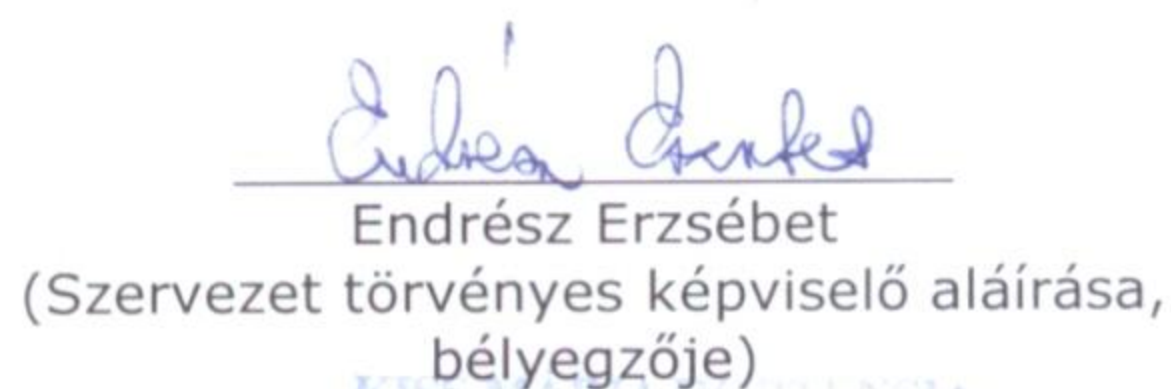 Endrész Erzsébet
Endrész Erzsébet
(Szervezet törvényes képviselő aláírása,
bélyegzője)